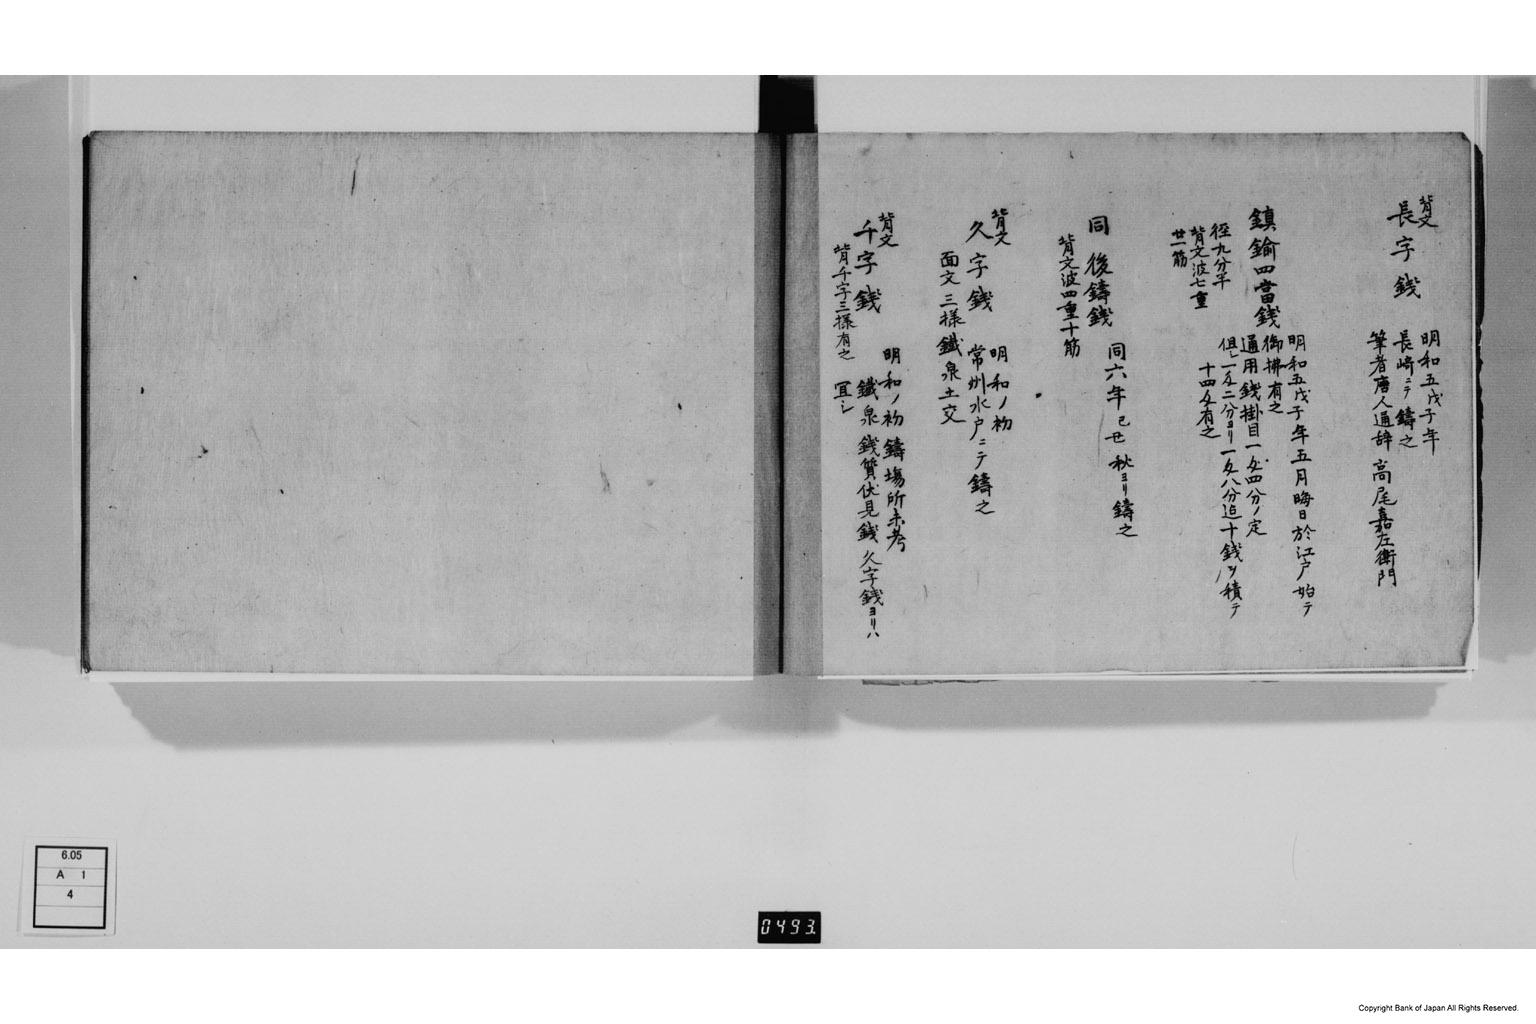 背文
長字銭
明和五戊子年
長崎ニテ鑄之
筆者唐人通辞 高尾嘉左衛門
鎮鍮四當銭
徑九分半
背文波七重
廿一筋
明和五戊子年五月晦日於江戸始テ
御拂有之
通用銭掛目一匁四分ノ定
但シ一匁二分ヨリ一匁八分迠十銭ツヽ積テ
十四匁有之
同後鑄銭
背文波四重十筋
同六年己丑秋ヨリ鑄之
背文
久字銭
面文三様鐵泉土交
明和ノ初
常州水戸ニテ鑄之
背文
千字銭
背千字三様有之
明和ノ初鑄場所未考
鐵泉銭質伏見銭久字銭ヨリハ
冝シ
6.05
A 1
4
0493.
Copyright Bank of Japan All Rights Reserved.